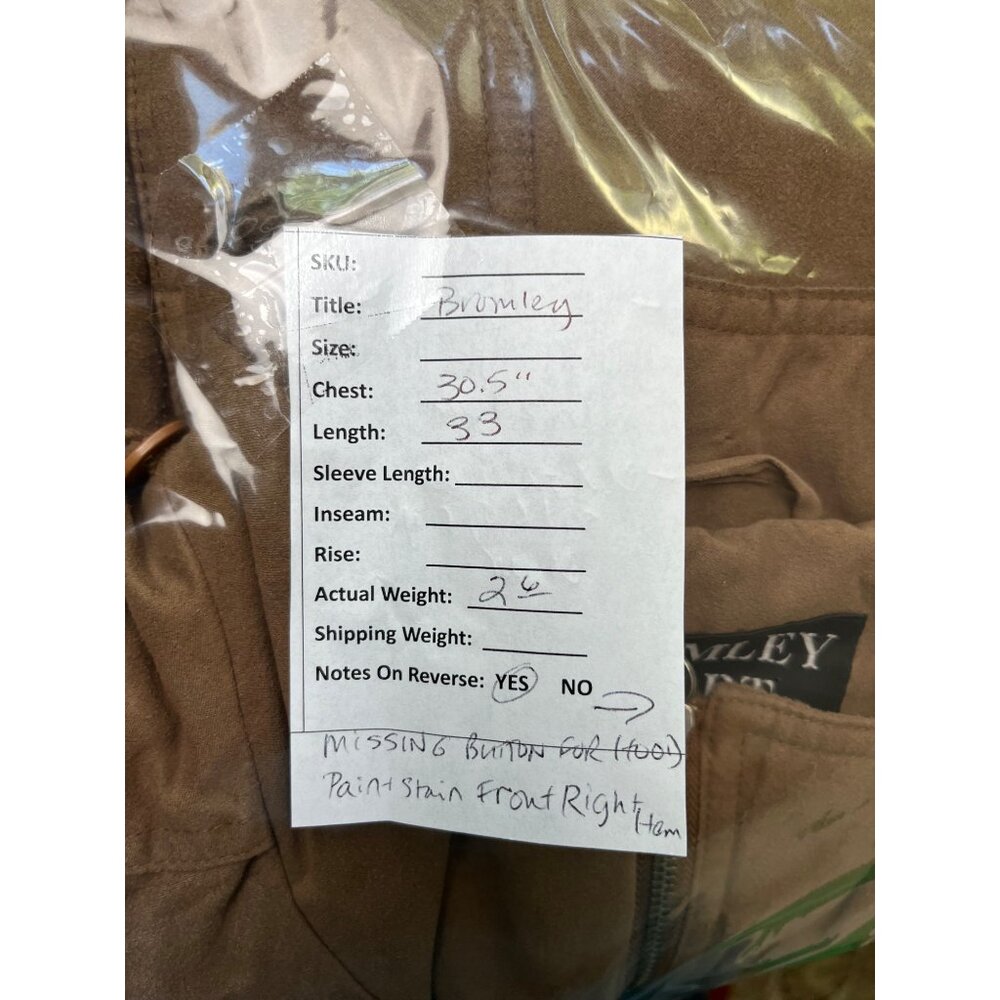 SKU:
Title: Bromley
Size:
Chest: 30.5"
Length: 33
Sleeve Length:
Inseam:
Rise:
Actual Weight: 2 6
Shipping Weight:
Notes On Reverse: YES NO
MISSING BUTTON FOR HOOD
Paint Stain Front Right Hem
MLEY